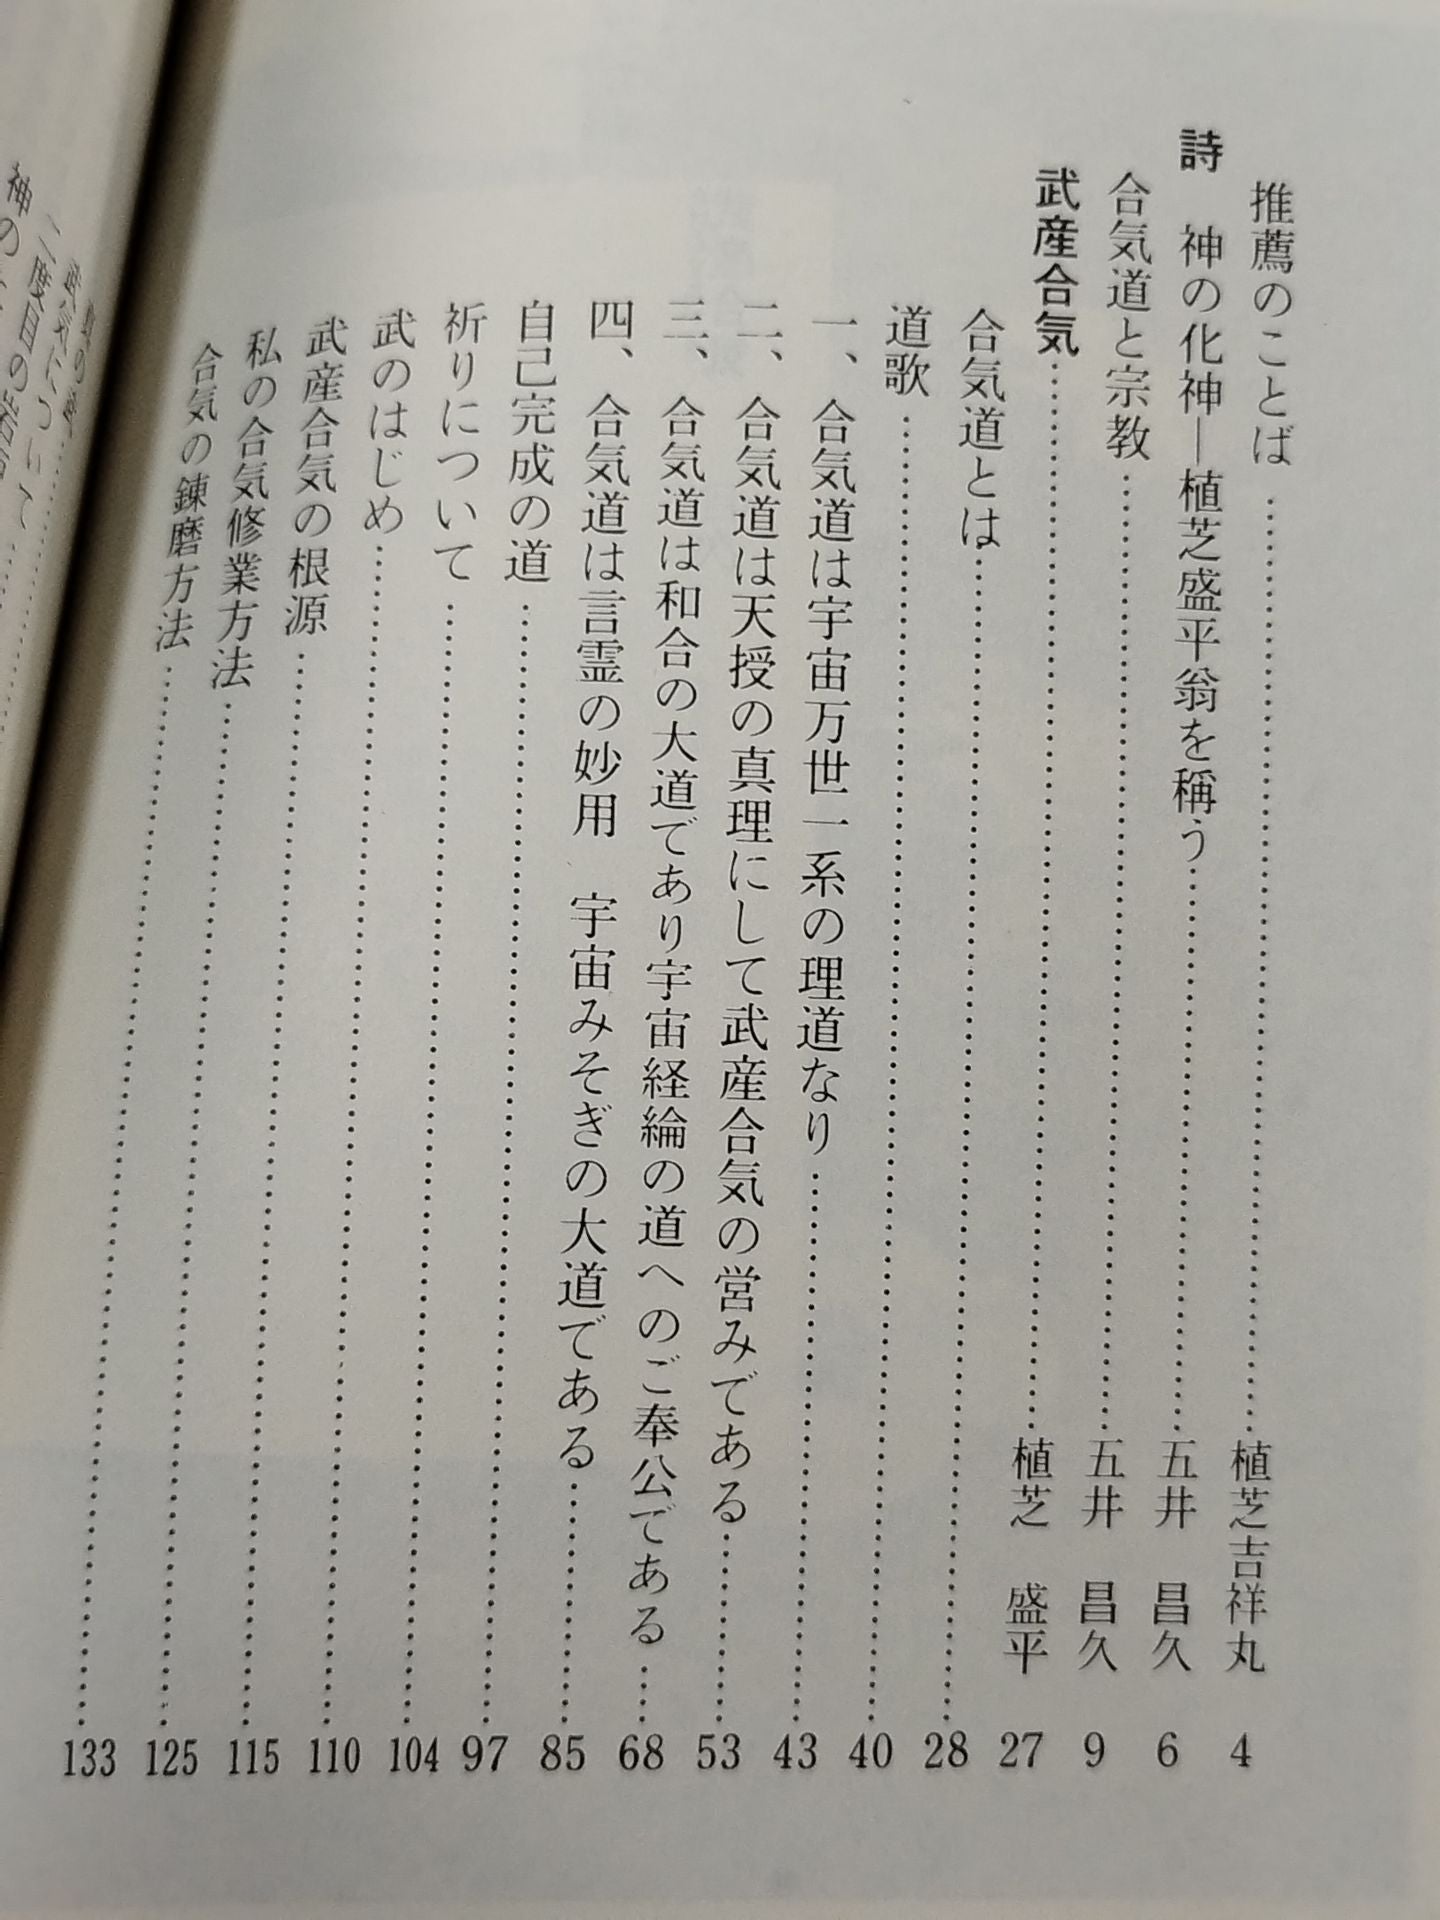 推薦のことば……植芝吉祥丸 4
詩　神の化神―植芝盛平翁を稱う……五井　昌久 6
合気道と宗教……五井　昌久 9
武産合気……植芝　盛平 27
合気道とは……28
道歌……40
一、合気道は宇宙万世一系の理道なり……43
二、合気道は天授の真理にして武産合気の営みである……53
三、合気道は和合の大道であり宇宙経綸の道へのご奉公である……68
四、合気道は言霊の妙用　宇宙みそぎの大道である……85
自己完成の道……97
祈りについて……104
武のはじめ……110
武産合気の根源……115
私の合気修業方法……125
合気の錬磨方法……133
について……
二度目の岩
神の